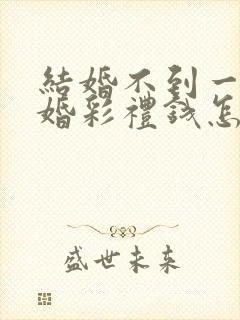 結婚不到一
婚彩禮錢怎
盛世未来